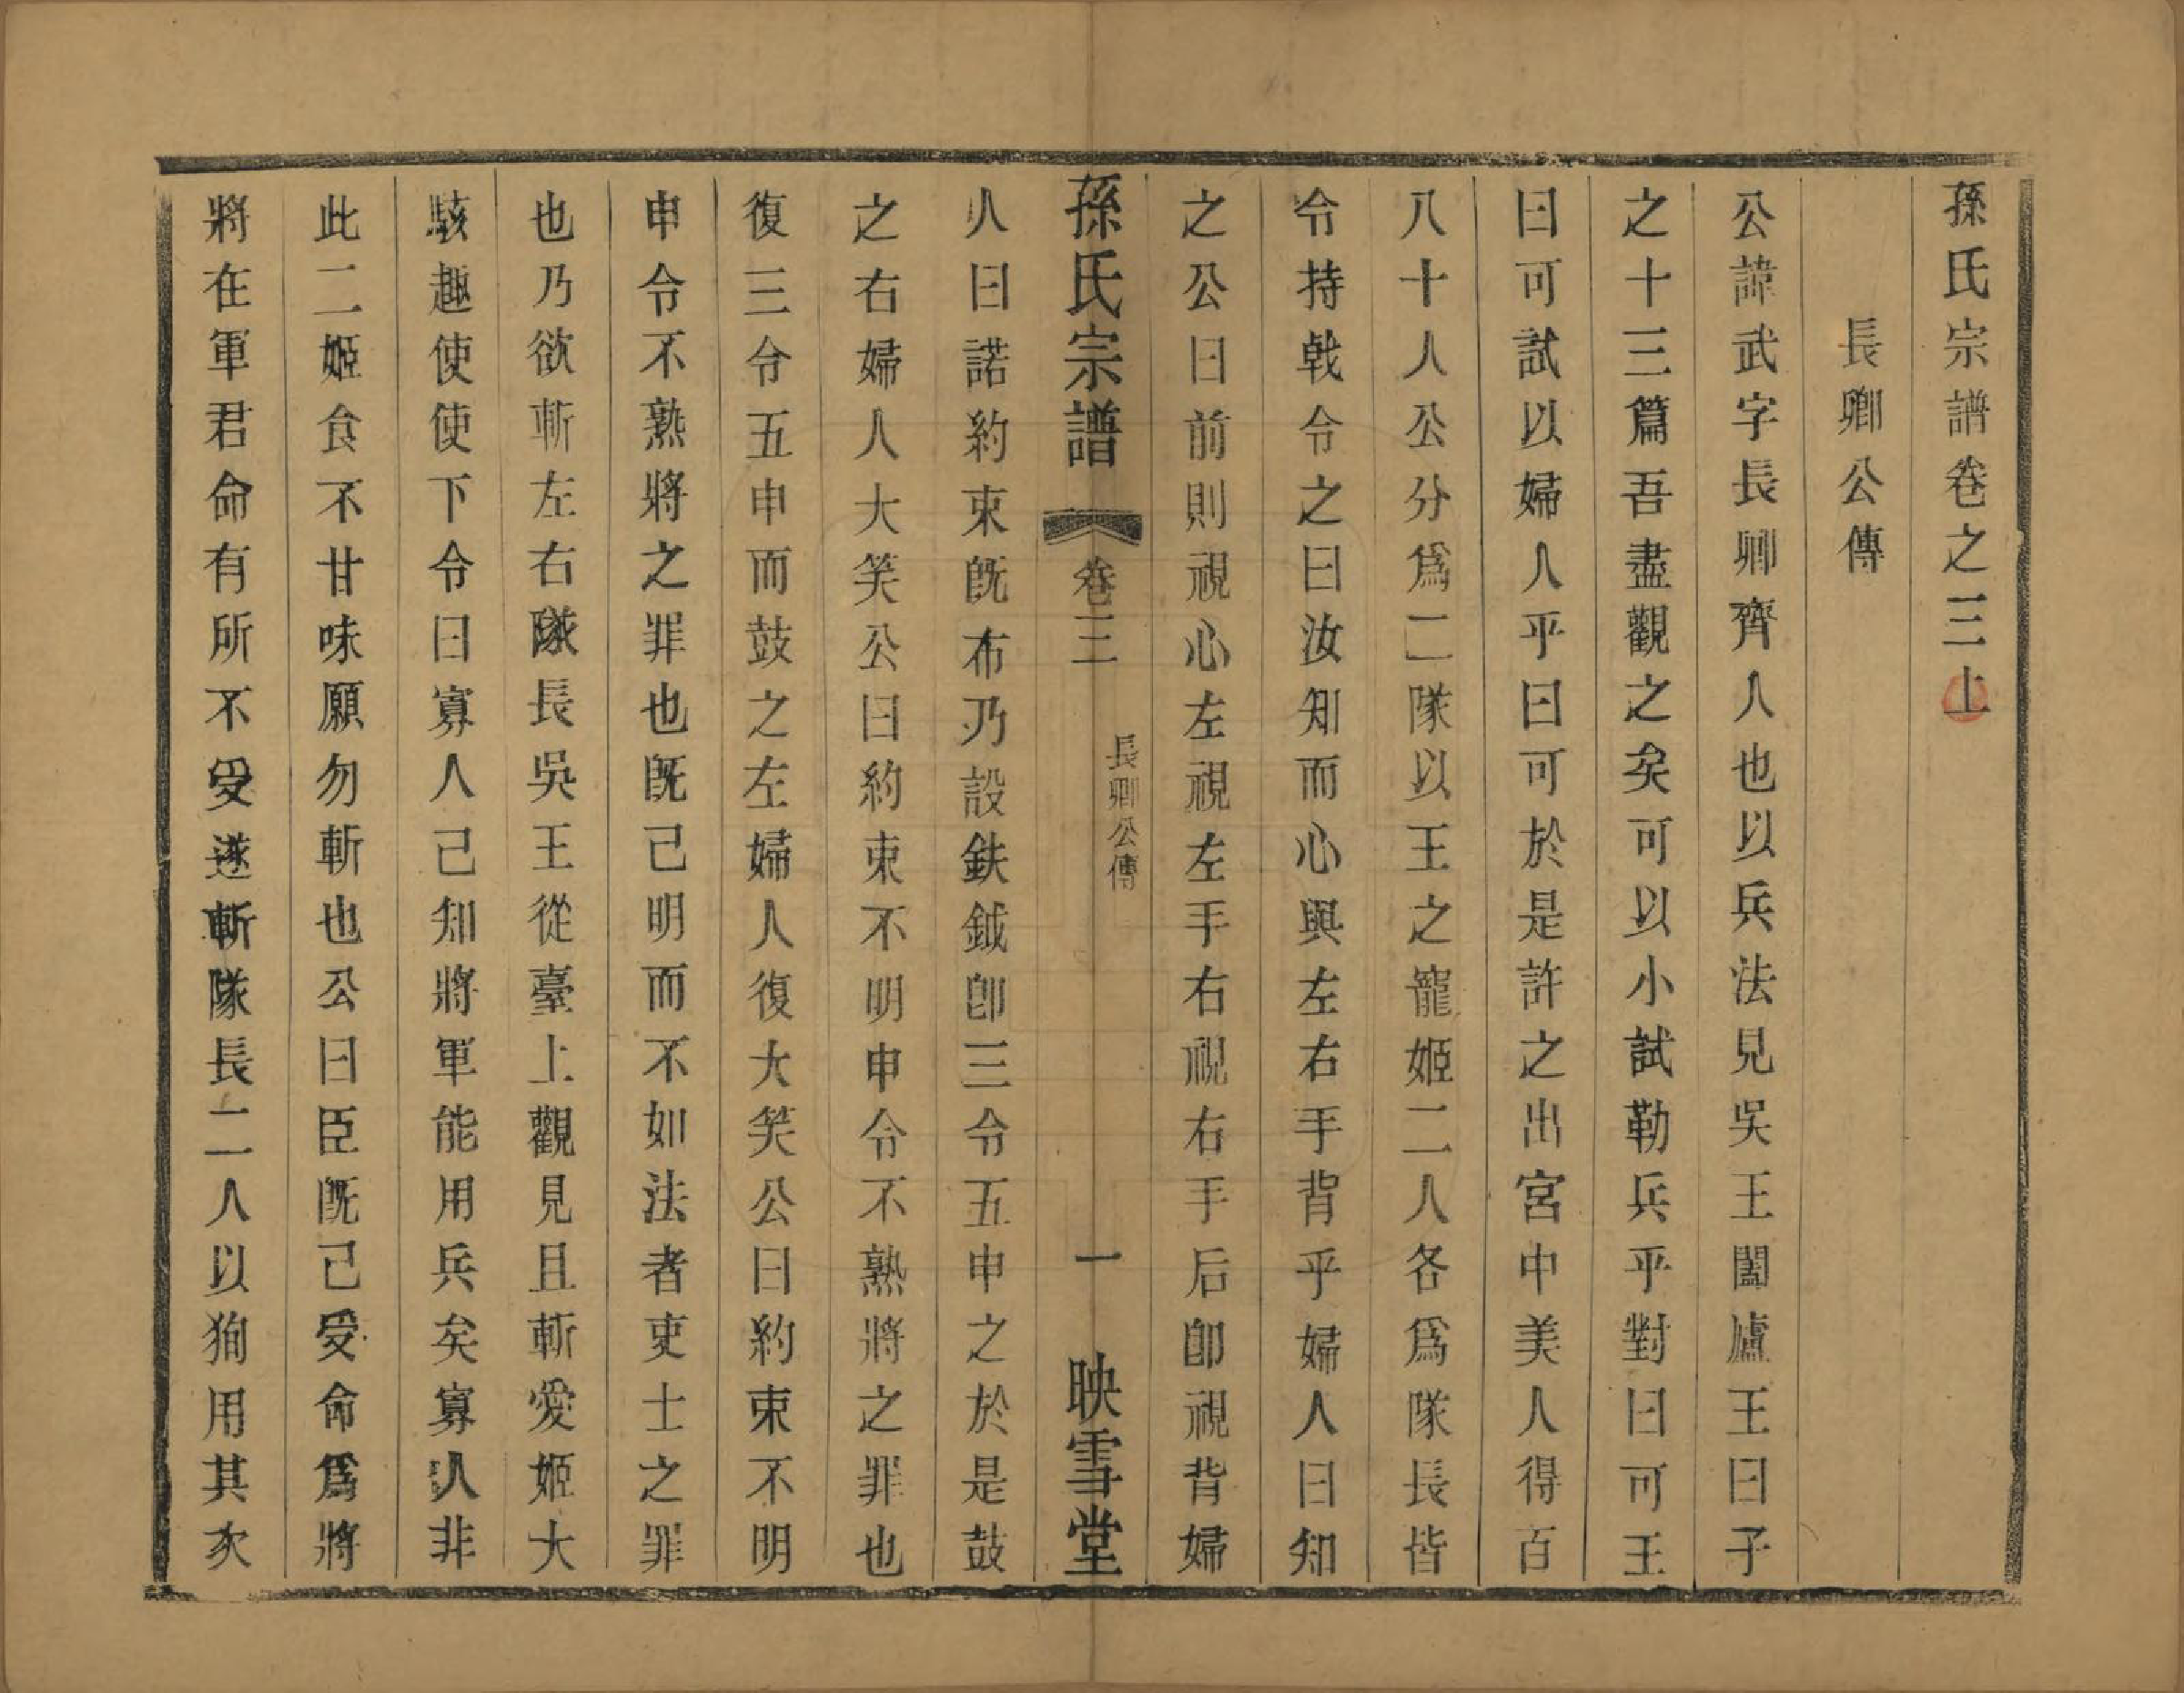 孫氏宗譜卷之三上
長卿公傳
公諱武字長卿齊人也以兵法見吳王闔廬王曰子
之十三篇吾盡觀之矣可以小試勒兵乎對曰可王
曰可試以婦人乎曰可於是許之出宮中美人得百
八十人公分爲二隊以王之寵姬二人各爲隊長皆
令持戟令之曰汝知而心與左右手背乎婦人曰知
之公曰前則視心左視左手右視右手后卽視背婦
孫氏宗譜 卷三 長卿公傳 一 映雪堂
人曰諾約束旣布乃設鈇鉞卽三令五申之於是鼓
之右婦人大笑公曰約束不明申令不熟將之罪也
復三令五申而鼓之左婦人復大笑公曰約束不明
申令不熟將之罪也旣己明而不如法者吏士之罪
也乃欲斬左右隊長吳王從臺上觀見且斬愛姬大
駭趣使使下令曰寡人己知將軍能用兵矣寡人非
此二姬食不甘味願勿斬也公曰臣旣己受命爲將
將在軍君命有所不受遂斬隊長二人以狥用其次